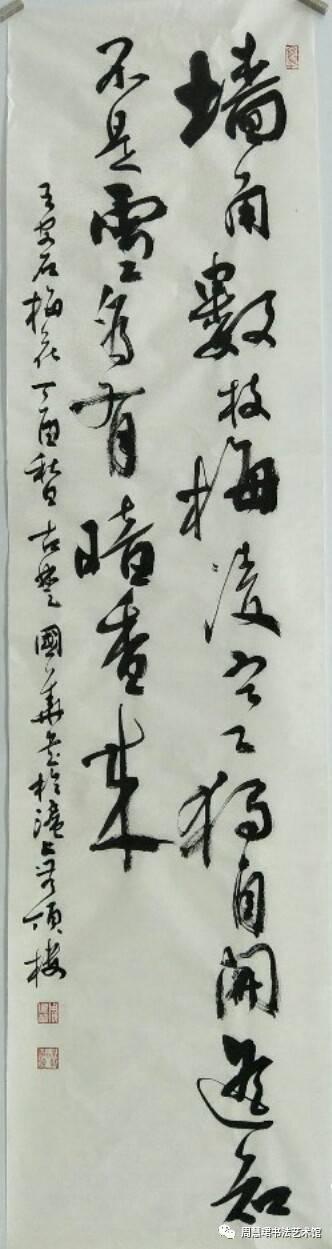 墙角数枝梅凌寒独自开遥知
不是雪为有暗香来
王安石梅花丁酉秋日古楚國华书於滬上无项楼
周慧珺书法艺术馆